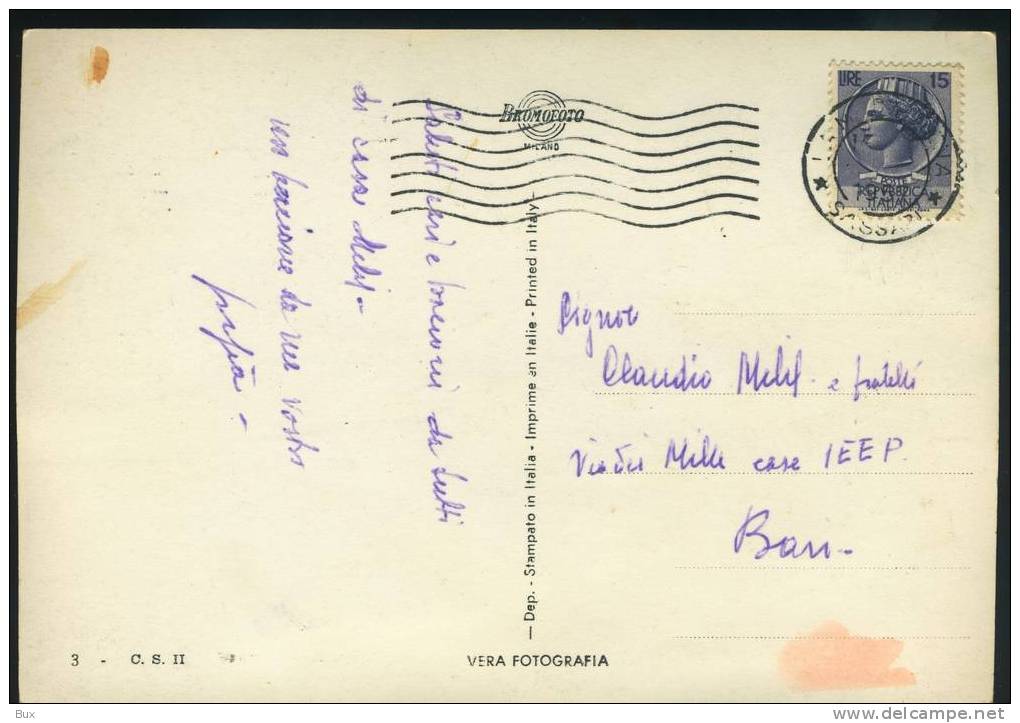 LIRE 15
POSTE
REPVBBLICA
ITALIANA
SASSARI
BROMOFOTO
MILANO
cari e bacioni da tutti
di casa Milel-
un bacione da me vostro
papà-
— Dep. - Stampato in Italia - Imprime en Italie - Printed in Italy -
Signor
Claudio Milel - e fratelli
Via dei Mille case IEEP.
Bari-
3 - C. S. II
VERA FOTOGRAFIA
Bux
http://www.delcampe.net